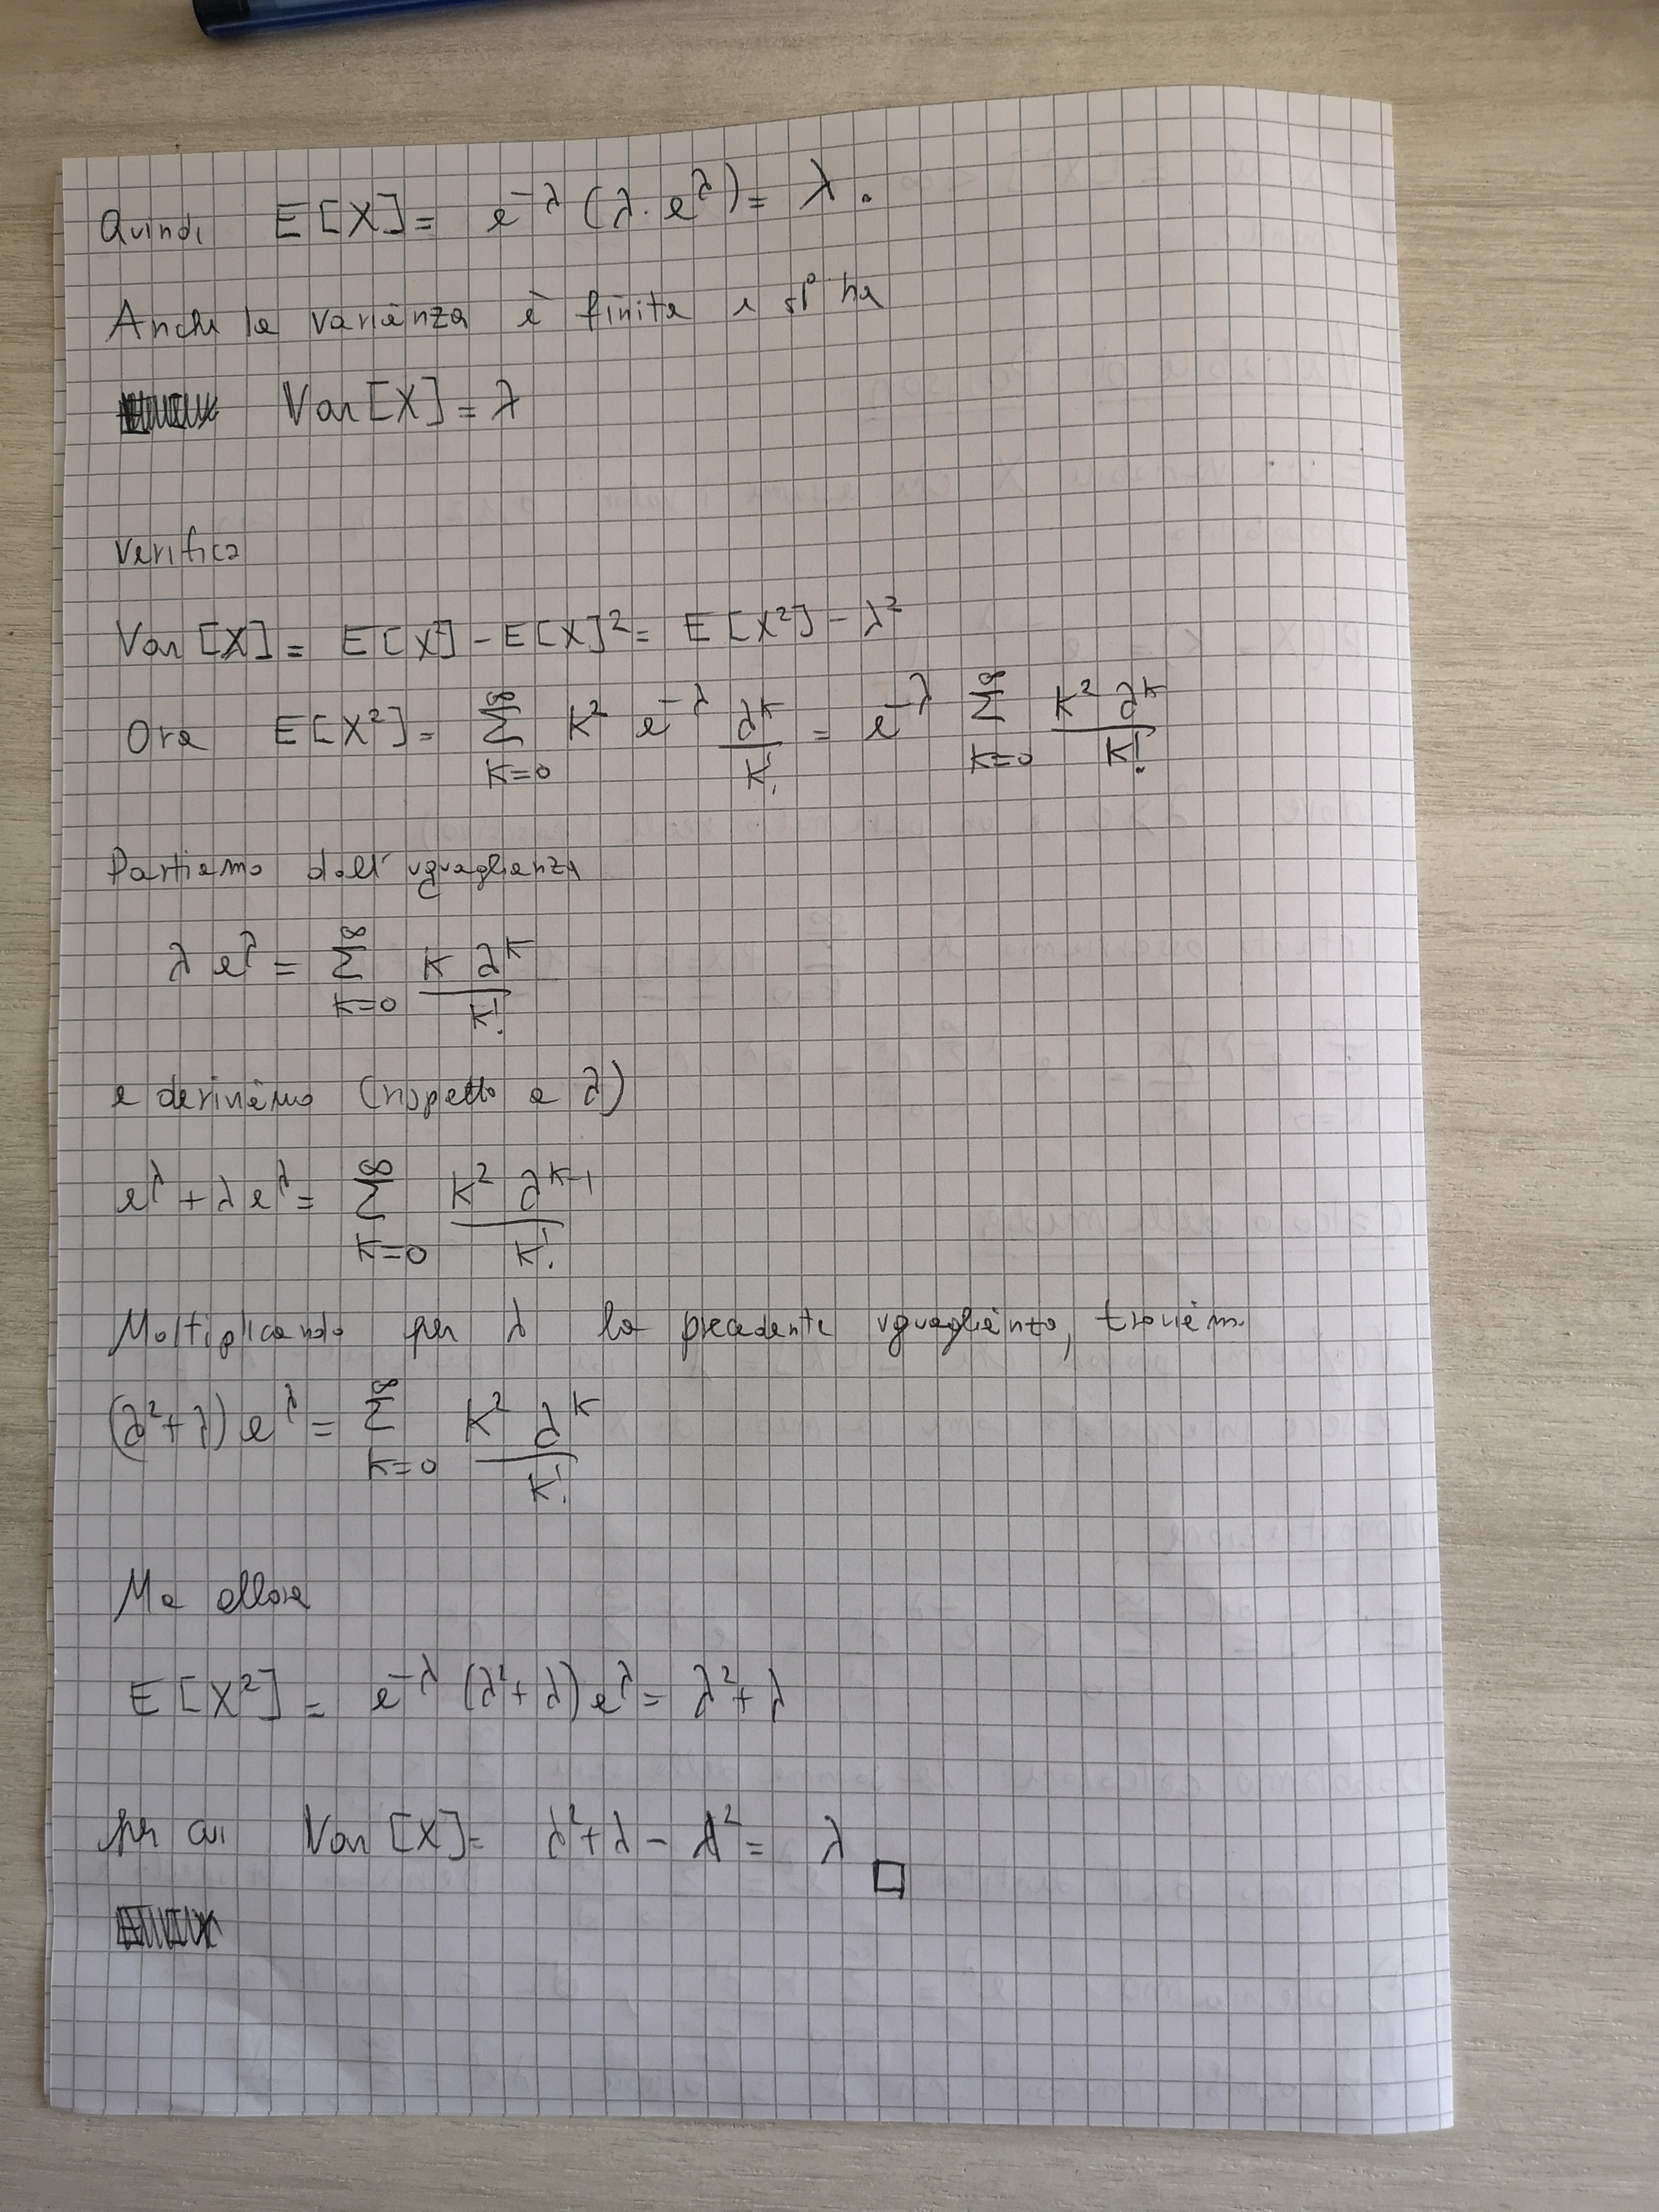 Quindi E[X] = e^{-λ} (λ · e^{λ}) = λ.
Anche la varianza è finita e si ha
Var[X] = λ
Verifica
Var[X] = E[X²] - E[X]² = E[X²] - λ²
Ora E[X²] = ∑_{K=0}^{∞} K² e^{-λ} λ^K/K! = e^{-λ} ∑_{K=0}^{∞} K² λ^K/K!
Partiamo dall'uguaglianza
λ e^{λ} = ∑_{K=0}^{∞} K λ^K/K!
e deriviamo (rispetto a λ)
e^{λ} + λ e^{λ} = ∑_{K=0}^{∞} K² λ^{K-1}/K!
Moltiplicando per λ la precedente uguaglianza, troviam
(λ² + λ) e^{λ} = ∑_{K=0}^{∞} K² λ^K/K!
Ma allora
E[X²] = e^{-λ} (λ² + λ) e^{λ} = λ² + λ
per cui Var[X] = λ² + λ - λ² = λ □